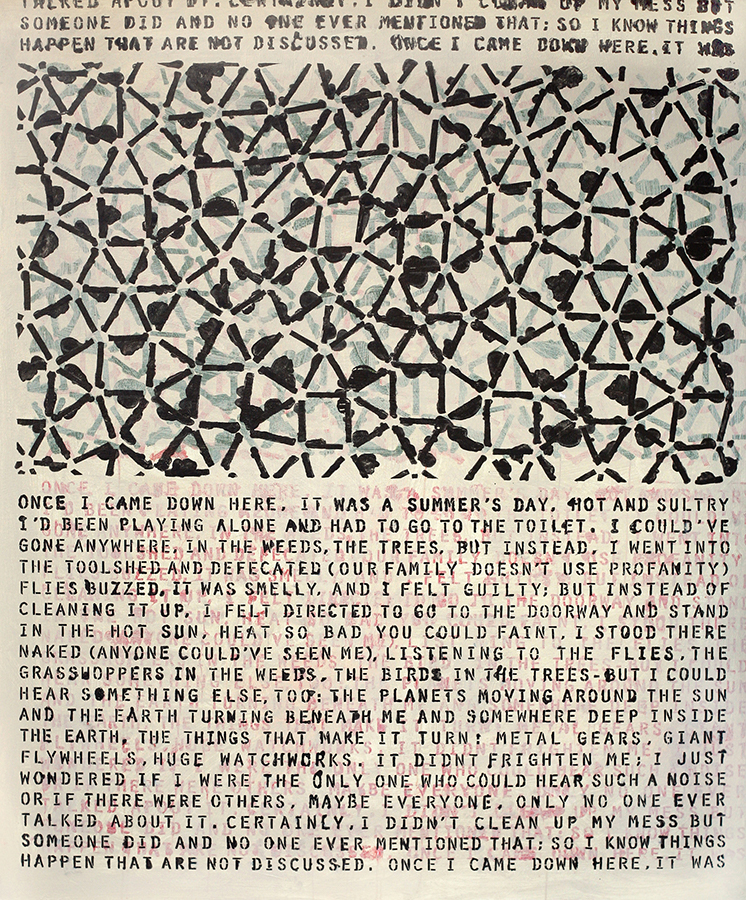 TALKED ABOUT IT. CERTAINLY, I DIDN'T CLEAN UP MY MESS BUT
SOMEONE DID AND NO ONE EVER MENTIONED THAT; SO I KNOW THINGS
HAPPEN THAT ARE NOT DISCUSSED. ONCE I CAME DOWN HERE, IT WAS
ONCE I CAME DOWN HERE, IT WAS A SUMMER'S DAY, HOT AND SULTRY
I'D BEEN PLAYING ALONE AND HAD TO GO TO THE TOILET. I COULD'VE
GONE ANYWHERE, IN THE WEEDS, THE TREES, BUT INSTEAD, I WENT INTO
THE TOOLSHED AND DEFECATED (OUR FAMILY DOESN'T USE PROFANITY)
FLIES BUZZED, IT WAS SMELLY, AND I FELT GUILTY; BUT INSTEAD OF
CLEANING IT UP, I FELT DIRECTED TO GO TO THE DOORWAY AND STAND
IN THE HOT SUN, HEAT SO BAD YOU COULD FAINT, I STOOD THERE
NAKED (ANYONE COULD'VE SEEN ME), LISTENING TO THE FLIES, THE
GRASSHOPPERS IN THE WEEDS, THE BIRDS IN THE TREES-BUT I COULD
HEAR SOMETHING ELSE, TOO: THE PLANETS MOVING AROUND THE SUN
AND THE EARTH TURNING BENEATH ME AND SOMEWHERE DEEP INSIDE
THE EARTH, THE THINGS THAT MAKE IT TURN: METAL GEARS, GIANT
FLYWHEELS, HUGE WATCHWORKS. IT DIDNT FRIGHTEN ME; I JUST
WONDERED IF I WERE THE ONLY ONE WHO COULD HEAR SUCH A NOISE
OR IF THERE WERE OTHERS, MAYBE EVERYONE, ONLY NO ONE EVER
TALKED ABOUT IT. CERTAINLY, I DIDN'T CLEAN UP MY MESS BUT
SOMEONE DID AND NO ONE EVER MENTIONED THAT; SO I KNOW THINGS
HAPPEN THAT ARE NOT DISCUSSED. ONCE I CAME DOWN HERE, IT WAS